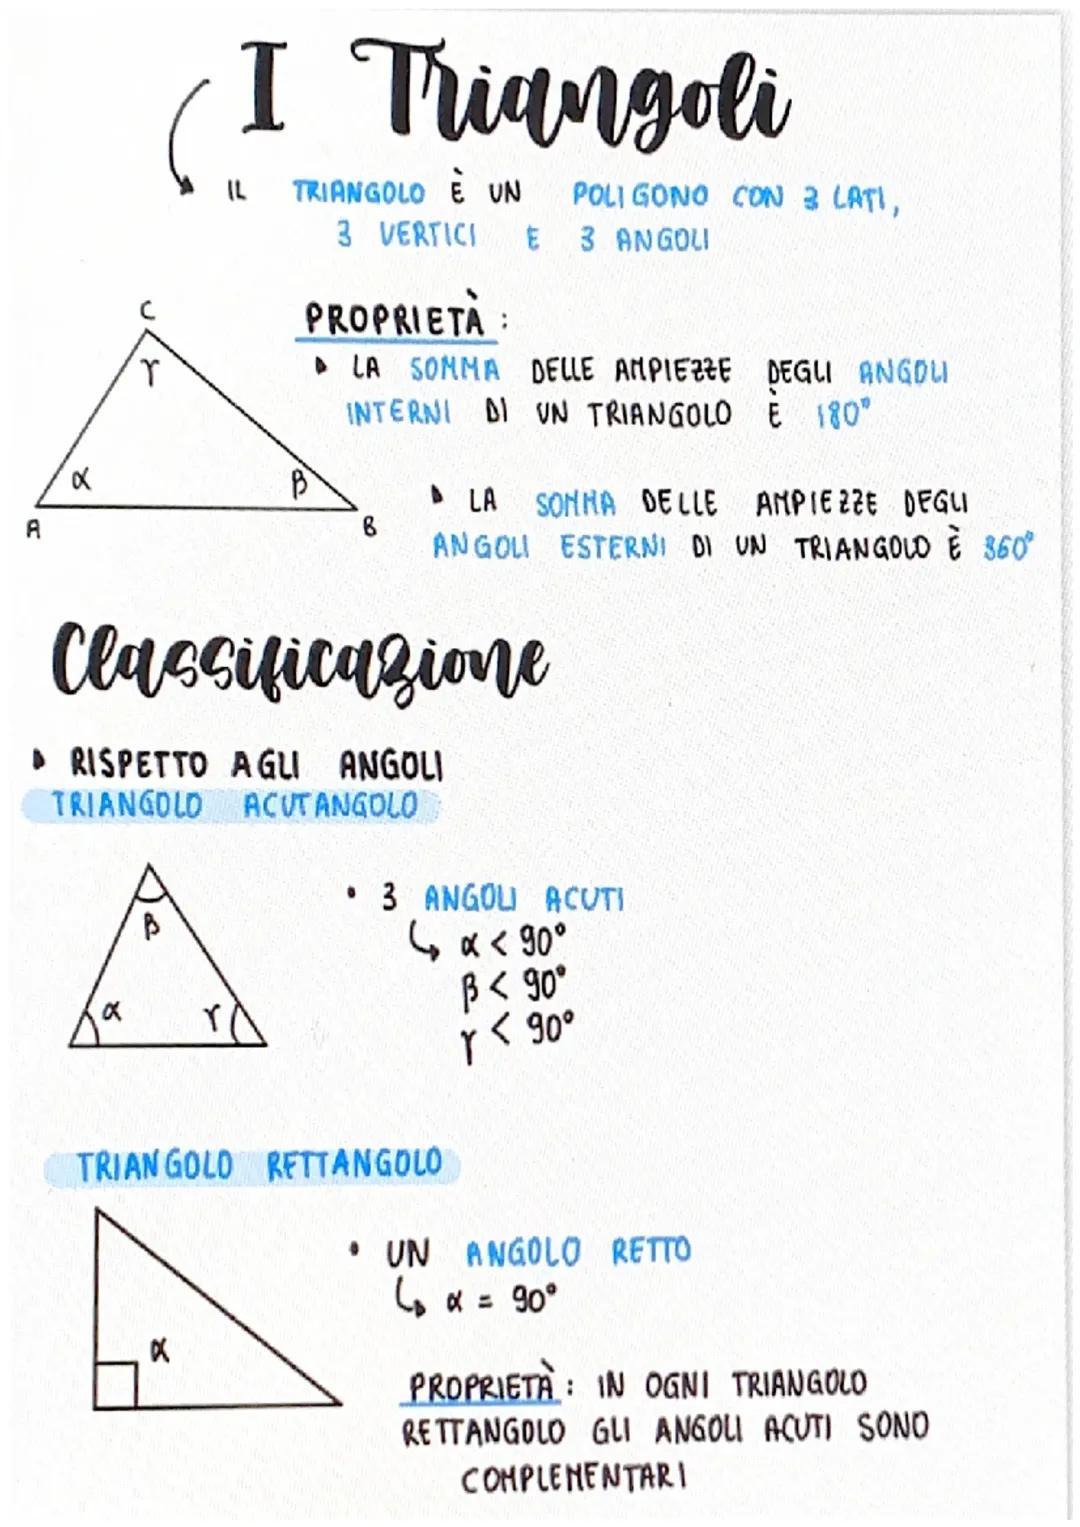 I Triangoli
IL TRIANGOLO È UN POLIGONO CON 3 LATI,
3 VERTICI E 3 ANGOLI
PROPRIETÀ :
LA SOMMA DELLE AMPIEZZE DEGLI ANGOLI
INTERNI DI UN TRIANGOLO È 180°
C
γ
α
β
A
B
LA SOMMA DELLE AMPIEZZE DEGLI
ANGOLI ESTERNI DI UN TRIANGOLO È 360°
Classificazione
RISPETTO AGLI ANGOLI
TRIANGOLO ACUTANGOLO
β
α
γ
• 3 ANGOLI ACUTI
↳ α < 90°
β < 90°
γ < 90°
TRIANGOLO RETTANGOLO
α
• UN ANGOLO RETTO
↳ α = 90°
PROPRIETÀ : IN OGNI TRIANGOLO
RETTANGOLO GLI ANGOLI ACUTI SONO
COMPLEMENTARI